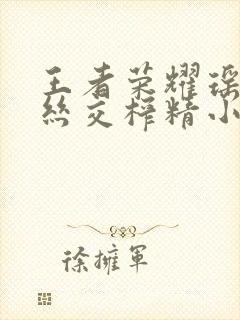 王者荣耀瑶
丝交榨精小
徐擁軍